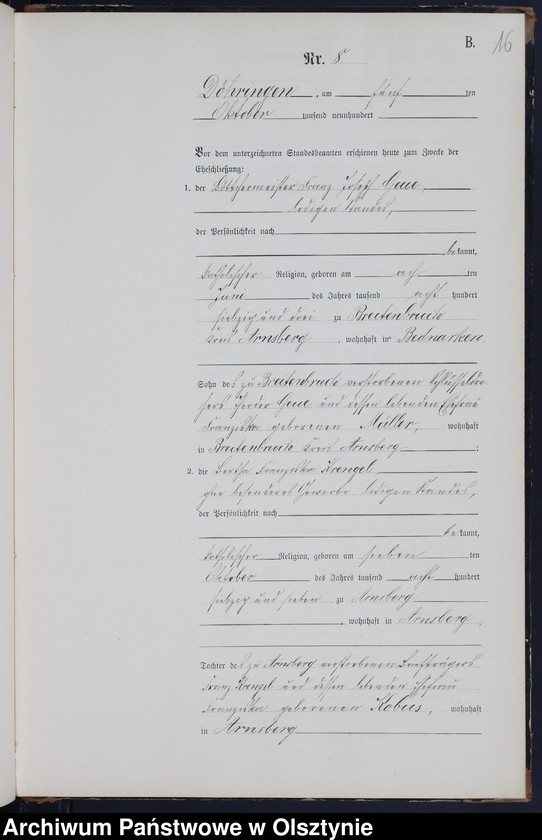 B. 16
Nr. 8
Döhringen, am fünf ten
Oktober tausend neunhundert
Vor dem unterzeichneten Standesbeamten erschienen heute zum Zwecke der
Eheschließung:
1. der Böttchermeister Franz Joseph
ledigen Standes,
der Persönlichkeit nach
bekannt,
katholischer Religion, geboren am ach ten
Juni des Jahres tausend acht hundert
siebzig und drei zu Breitenbruch
Kreis Arnsberg, wohnhaft in Bednarken,
Sohn des zu Breitenbruch verstorbenen
und dessen lebenden Ehefrau
Franziska geborenen Müller, wohnhaft
in Breitenbruch Kreis Arnsberg;
2. die Bertha Franziska Krengel
ohne besonderes Gewerbe, ledigen Standes,
der Persönlichkeit nach
bekannt,
katholischer Religion, geboren am sieben ten
Oktober des Jahres tausend acht hundert
siebzig und sieben zu Arnsberg
, wohnhaft in Arnsberg,
Tochter des zu Arnsberg verstorbenen Briefträgers
Franz Krengel und dessen lebenden Ehefrau
Franziska geborenen Kobus, wohnhaft
in Arnsberg
Archiwum Państwowe w Olsztynie